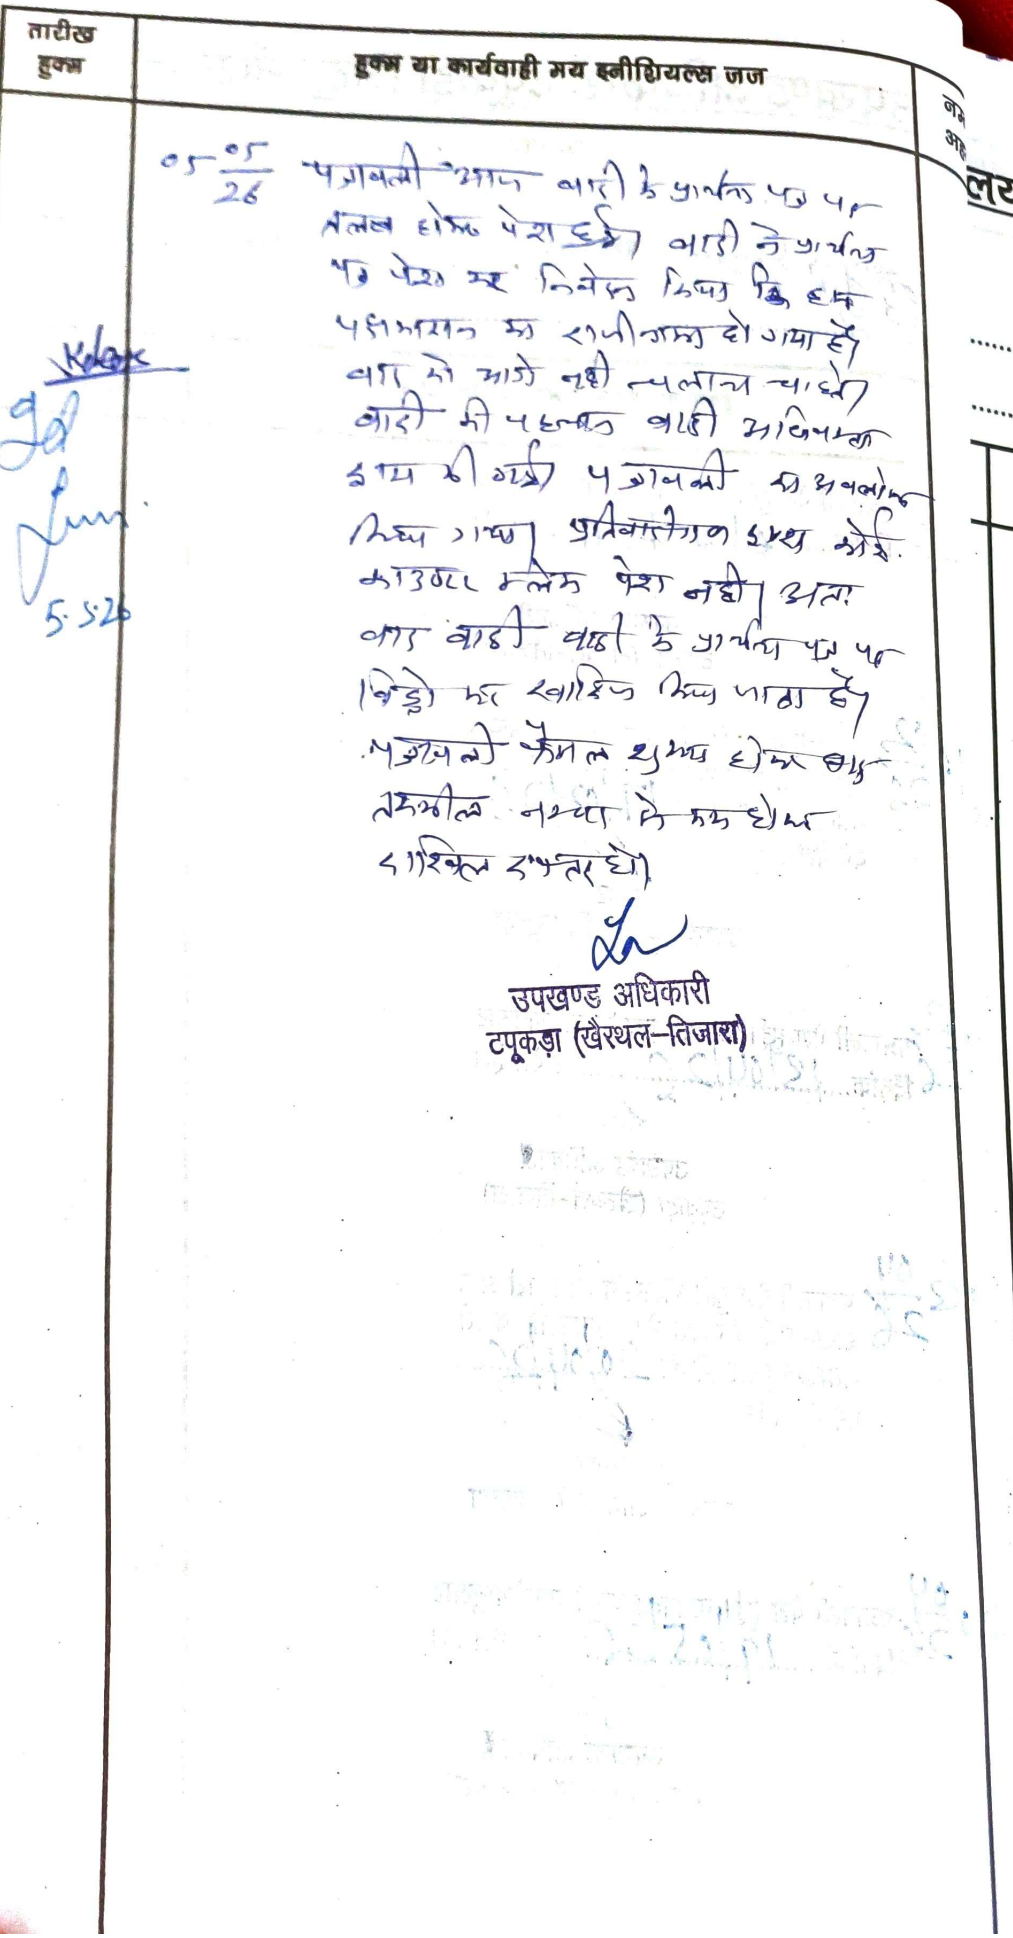 तारीख
हुक्म
हुक्म या कार्यवाही मय इनीशियल्स जज
नम
अह
लय
05-05/26 पत्रावली आज वादी के प्रार्थना पत्र पर
तलब होकर पेश हुई। वादी ने प्रार्थना
पत्र पेश कर निवेदन किया कि हम
पक्षकारान का राजीनामा हो गया है।
वाद को आगे नही चलाना चाहते।
वादी की पहचान वादी अधिवक्ता
द्वारा की गई। पत्रावली का अवलोकन
किया गया। प्रतिवादीगण द्वारा कोई
काउण्टर क्लेम पेश नही। अतः
वाद वादी वादी के प्रार्थना पत्र पर
विड्रो कर खारिज किया जाता है।
पत्रावली फैसल शुमार होकर बाद
तकमील नम्बर से कम होकर
दाखिल दफ्तर हो।
5.5.26
उपखण्ड अधिकारी
टपूकड़ा (खैरथल-तिजारा)